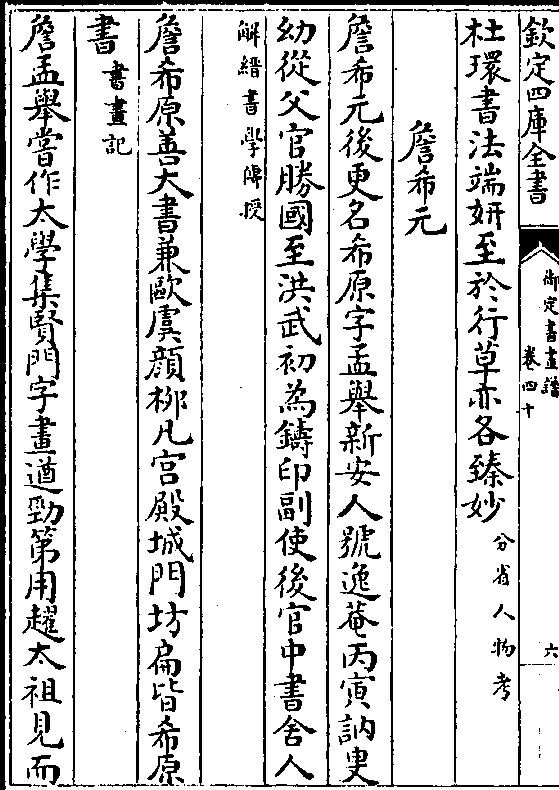 欽定四庫全書
御定書畫譜
卷四十
六
杜環書法端妍至於行草亦各臻妙分省人物考
詹希元
詹希元後更名希原字孟舉新安人號逸菴丙寅訥叟
幼從父官勝國至洪武初為鑄印副使後官中書舍人
解縉書學傳授
詹希原善大書兼歐虞顏柳凡宮殿城門坊扁皆希原
書書畫記
詹孟舉嘗作太學集賢門字畫遒勁第用趯太祖見而